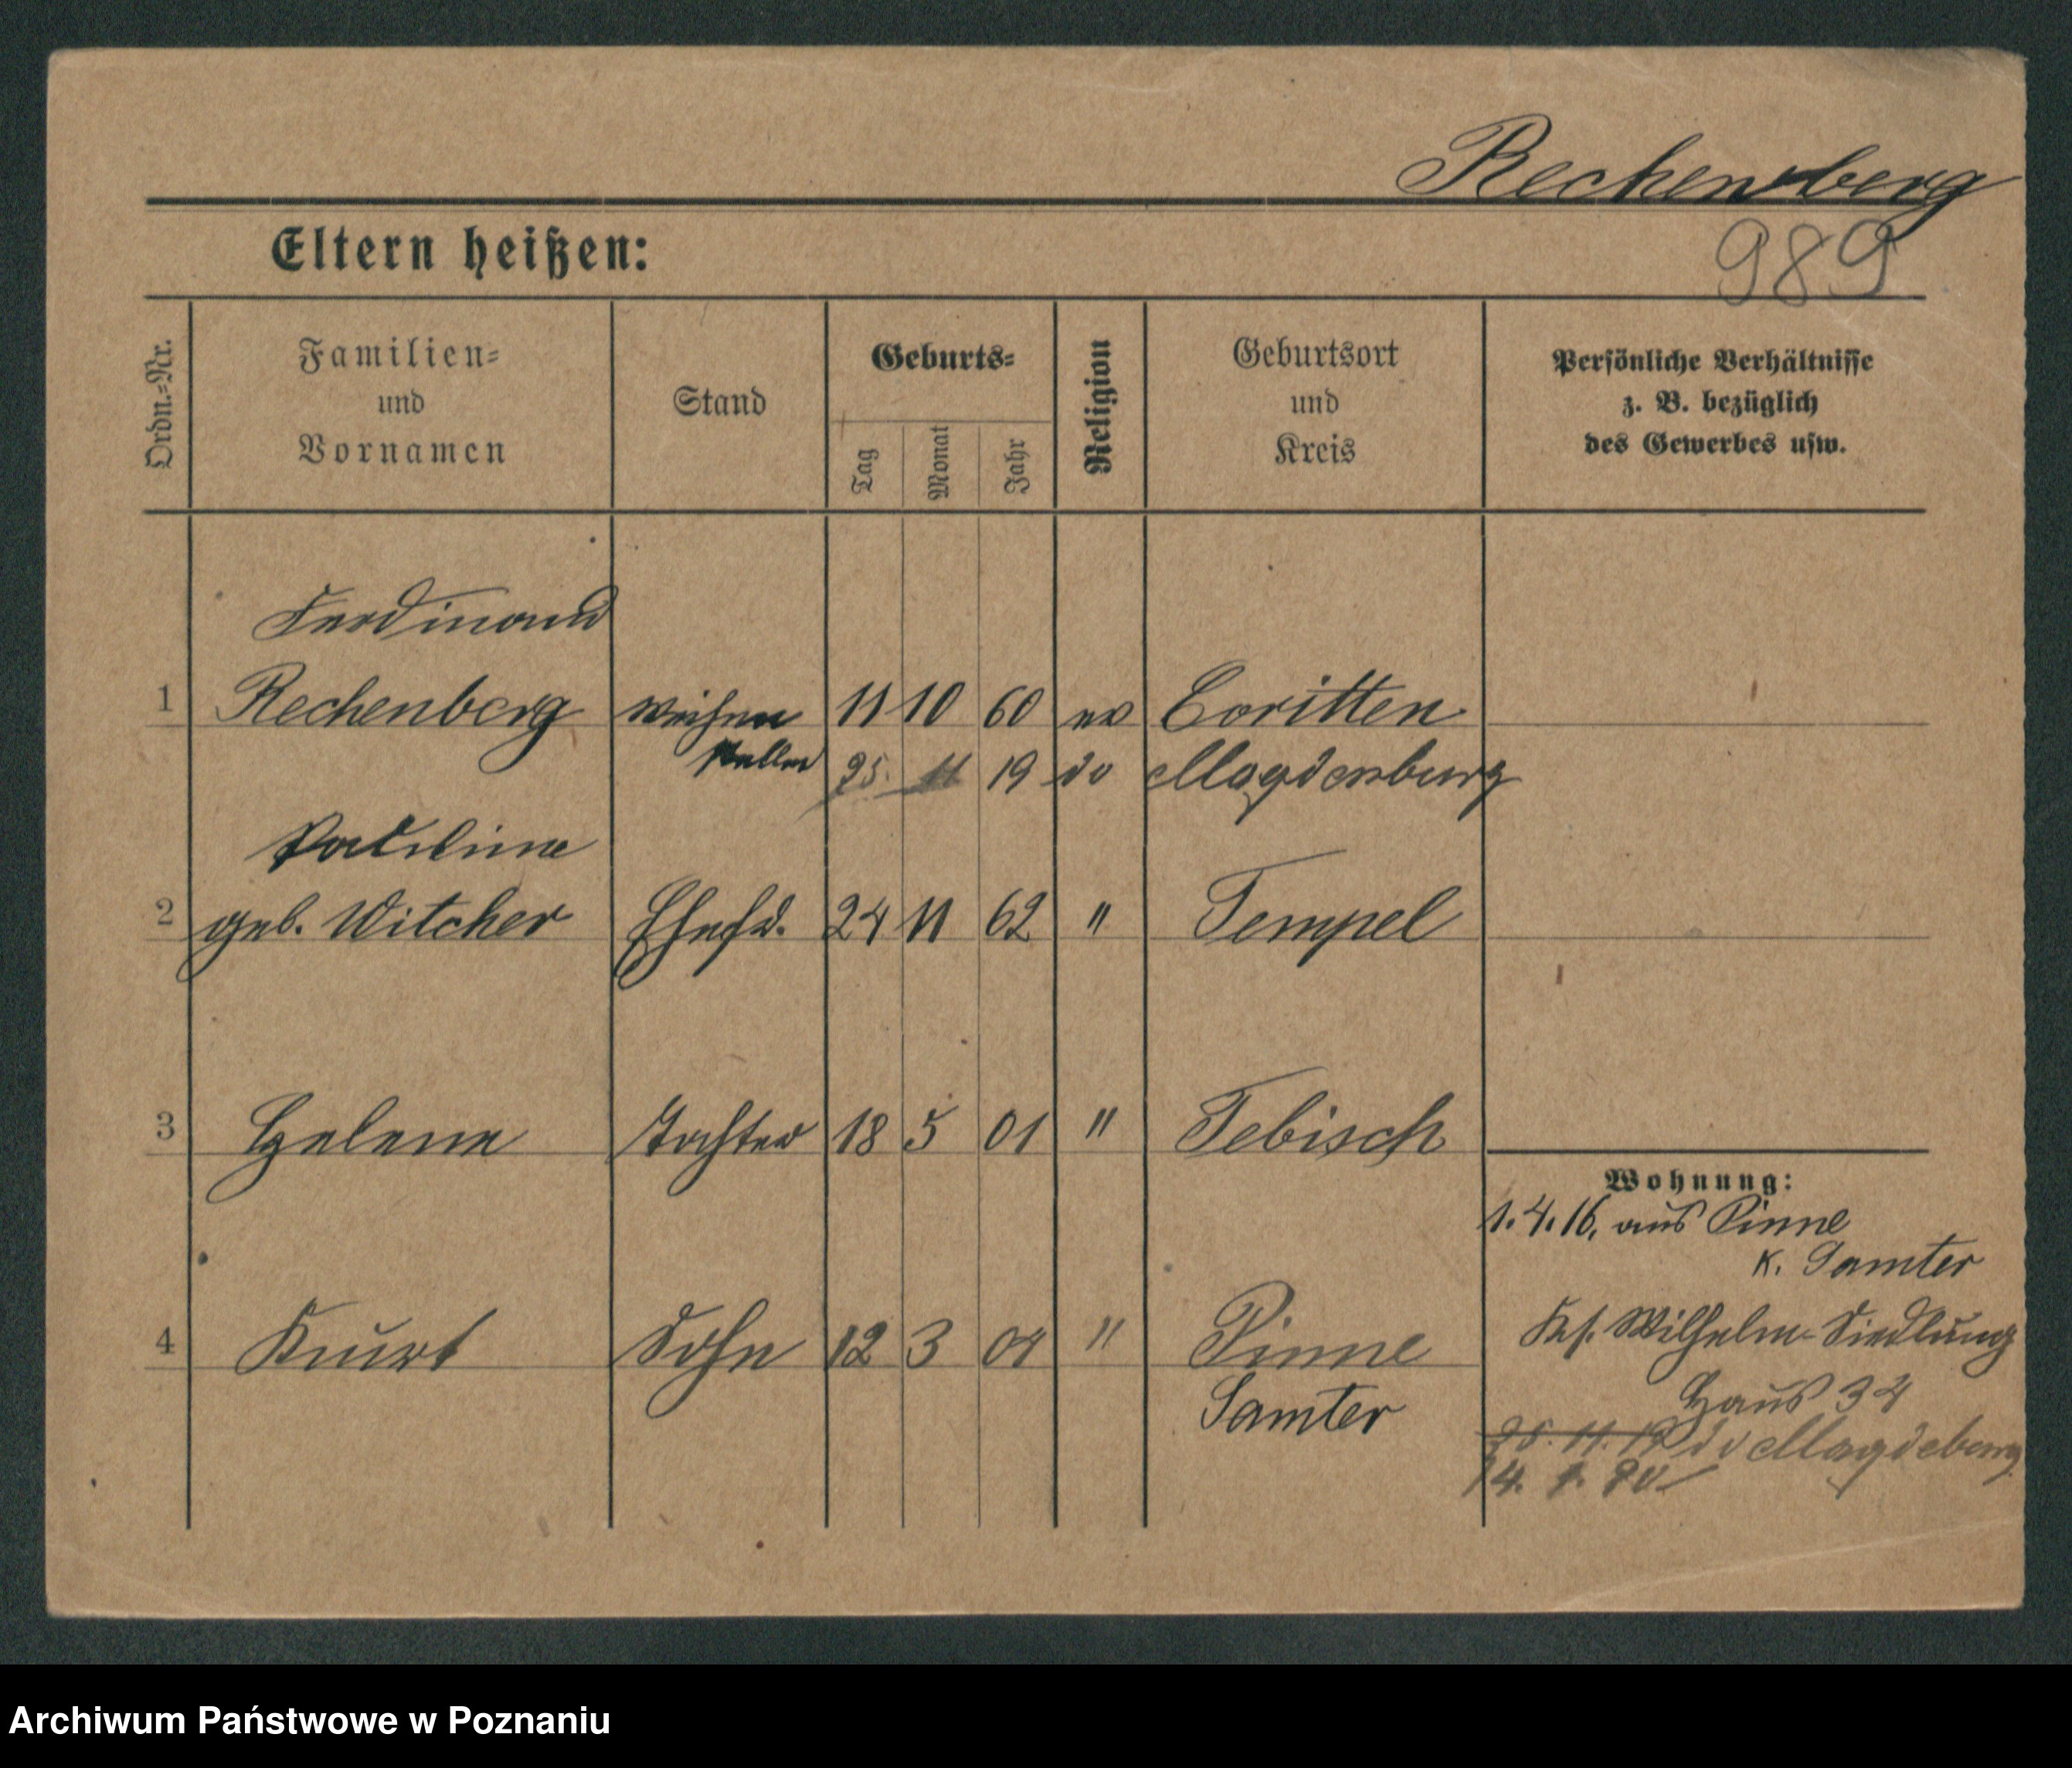 Rechenberg
989
Eltern heißen:
Ordn.-Nr.
Familien-
und
Vornamen
Stand
Geburts-
Tag
Monat
Jahr
Religion
Geburtsort
und
Kreis
Persönliche Verhältnisse
z. B. bezüglich
des Gewerbes usw.
Ferdinand
1 Rechenberg Weichen 11 10 60 ev Coritten
steller 25. 11 19 do Magdenburg
2 geb. Witcher Ehefr. 24 11 62 " Tempel
3 Helene Tochter 18 5 01 " Tebisch
Wohnung:
1.4.16, aus Pinne
K. Samter
4 Kurt Sohn 12 3 04 " Pinne
Samter
Ks. Wilhelm-Siedlung
Haus 34
25. 11. 19 do Magdeburg